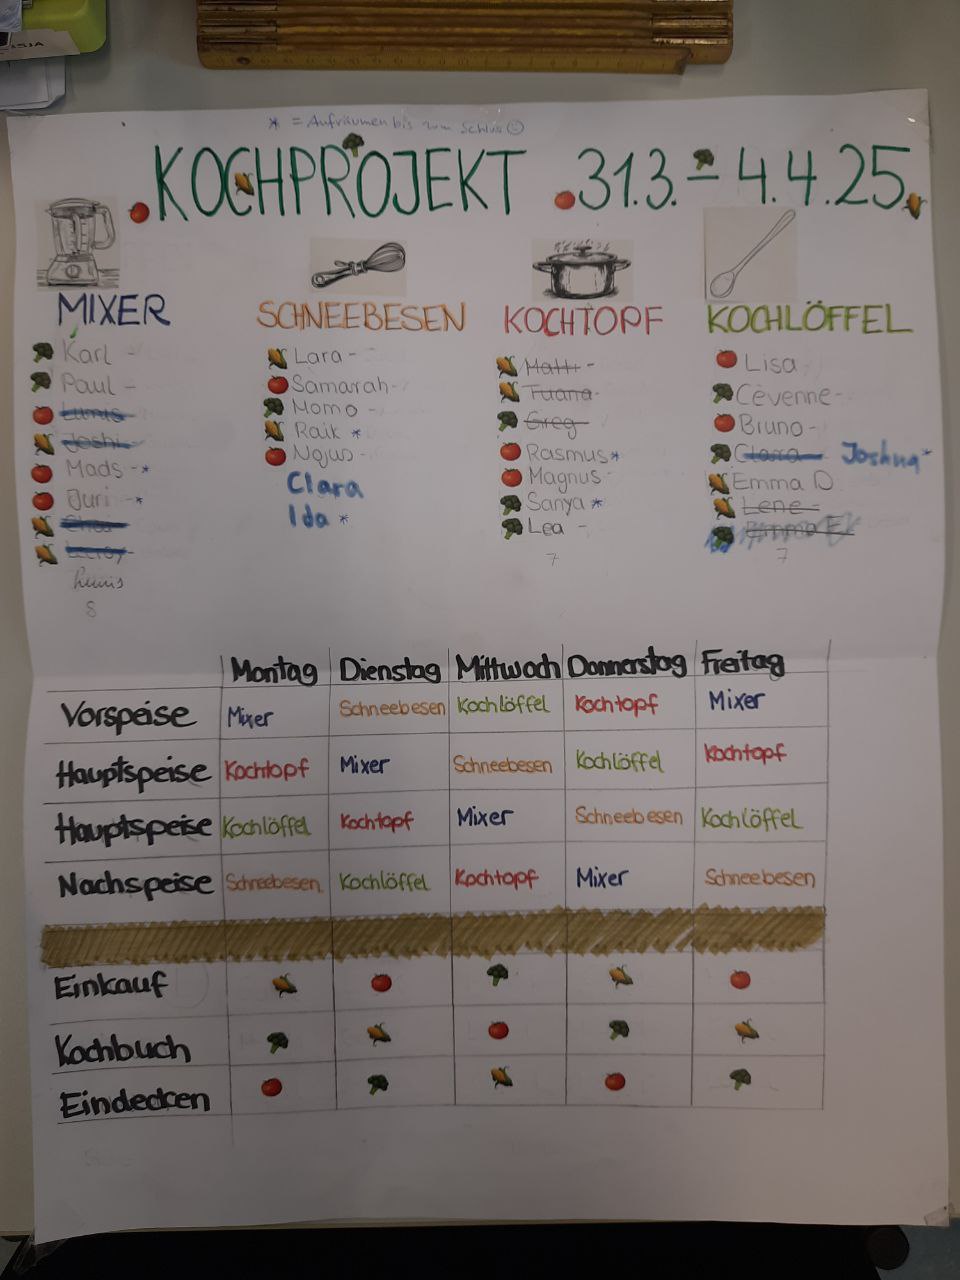 * = Aufräumen bis zum Schluss
KOCHPROJEKT 31.3. – 4.4.25
MIXER
Karl -
Paul -
Lunis
Joshi
Mads - *
Juri - *
Leeroy
Lunis
8
SCHNEEBESEN
Lara -
Samarah -
Momo -
Raik *
Nojus -
Clara
Ida *
KOCHTOPF
Matti -
Tuana -
Greg -
Rasmus *
Magnus -
Sanya *
Lea -
7
KOCHLÖFFEL
Lisa
Cevenne -
Bruno -
Clara Joshua *
Emma D
Lene -
Emma E
7
Montag Dienstag Mittwoch Donnerstag Freitag
Vorspeise Mixer Schneebesen Kochlöffel Kochtopf Mixer
Hauptspeise Kochtopf Mixer Schneebesen Kochlöffel Kochtopf
Hauptspeise Kochlöffel Kochtopf Mixer Schneebesen Kochlöffel
Nachspeise Schneebesen Kochlöffel Kochtopf Mixer Schneebesen
Einkauf
Kochbuch
Eindecken